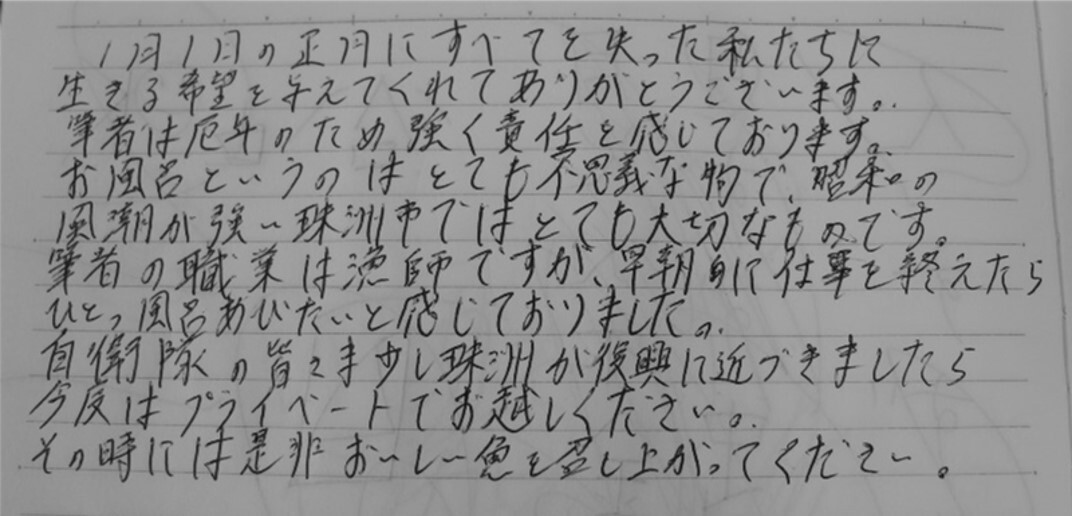 1月1日の正月にすべてを失った私たちに
生きる希望を与えてくれてありがとうございます。
筆者は厄年のため強く責任を感じております。
お風呂というのはとても不思義な物で、昭和の
風潮が強い珠洲市ではとても大切なものです。
筆者の職業は漁師ですが、早朝に仕事を終えたら
ひとっ風呂あびたいと感じておりました。
自衛隊の皆さま少し珠洲が復興に近づきましたら
今度はプライベートでお越しください。
その時には是非おいしい魚を召し上がってください。